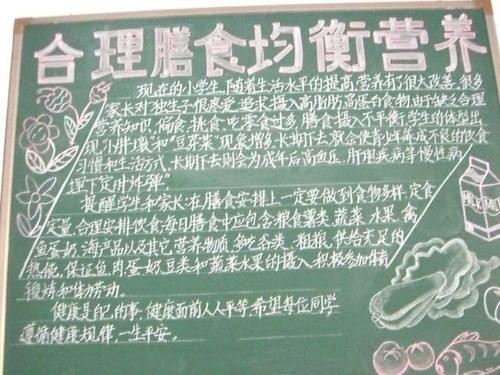 合理膳食均衡营养
现在的小学生,随着生活水平的提高,营养有了很大改善,很多
家长对独生子很疼爱,追求摄入高脂肪高蛋白食物,由于缺乏合理
营养知识,偏食、挑食、吃零食过多,膳食摄入不平衡,学生的体型出
现"小胖墩"和"豆芽菜"现象增多,长期下去,就会使青少年养成不良的饮食
习惯和生活方式,长期下去则会为成年后高血压、肝胆疾病等慢性病
埋下"定时炸弹"。
提醒学生和家长在膳食安排上一定要做到食物多样,定食
定量,合理安排饮食,每日膳食中应包含粮食薯类、蔬菜、水果、禽
鱼蛋奶、海产品以及其它营养物质,多吃杂粮、粗粮,供给充足的
热能,保证鱼肉蛋奶豆类和蔬菜水果的摄入,积极参加体育
锻炼和体力劳动。
健康是自己的事,健康面前人人平等,希望每位同学
遵循健康规律,一生平安。
MILK